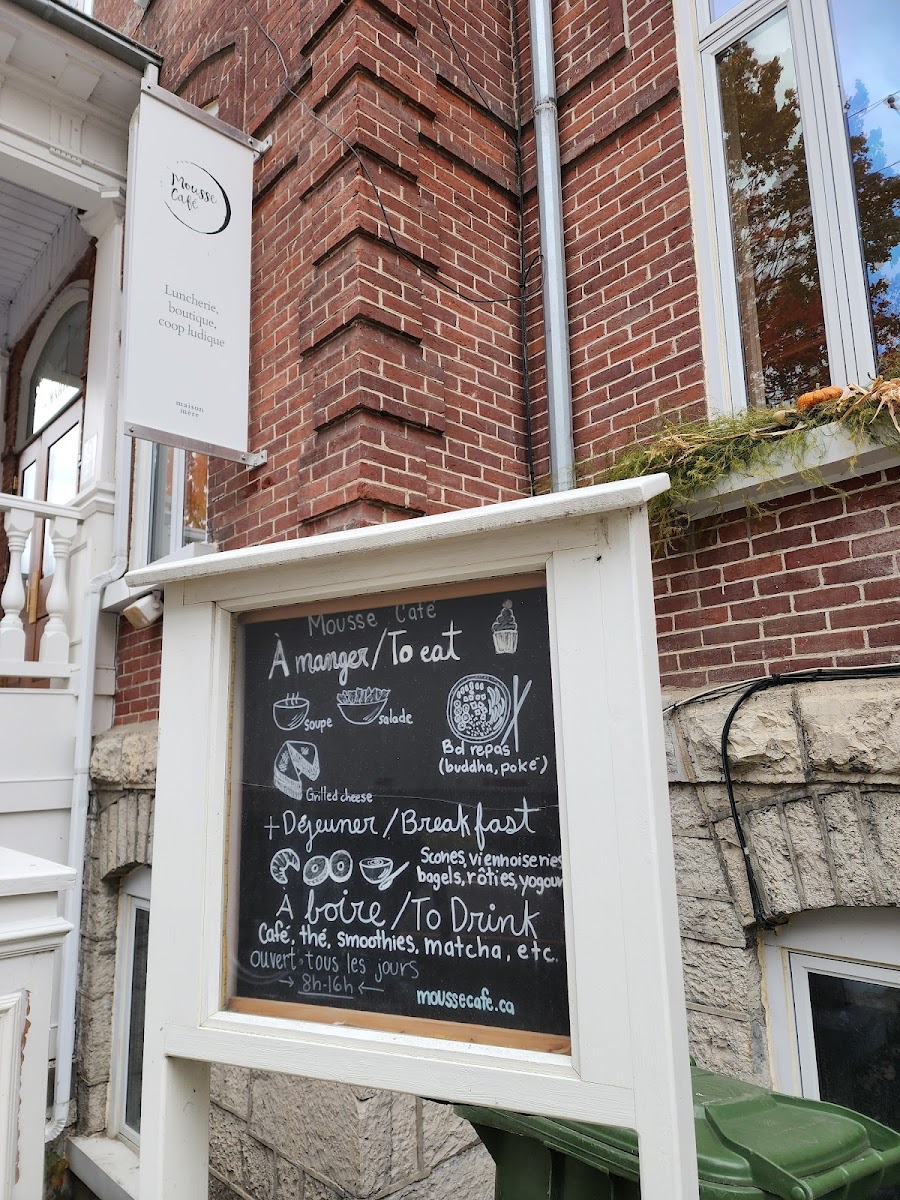 Mousse
Café
Luncherie,
boutique,
coop ludique
maison
mère
Mousse Café
À manger/To eat
soupe
salade
Bol repas
(buddha, poké)
Grilled cheese
+Déjeuner/Breakfast
Scones, viennoiseries
bagels, rôties, yogour
À boire/To Drink
Café, thé, smoothies, matcha, etc.
ouvert tous les jours
→ 8h-16h ←
moussecafe.ca